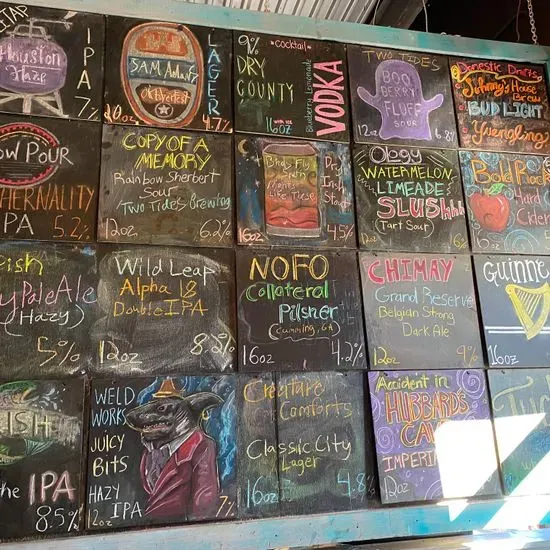 TAP
Houston
Haze
IPA
7
SAM Adams
Oktoberfest
LAGER
20oz
4.7%
9%
Cocktail
DRY
COUNTY
Blueberry Lemonade
VODKA
16oz
TWO TIDES
BOO
BERRY
FLUFF
SOUR
12oz
6.8
Domestic Drafts
Johnny's House
Brew
BUD LIGHT
Yuengling
OW POUR
HERNALITY
IPA 5.2%
COPY OF A
MEMORY
Rainbow Sherbert
Sour
Two Tides Brewing
12oz
6.2%
Birds Fly
South
Like These
Dry
Irish
Stout
16oz
4.5%
Ology
WATERMELON
LIMEADE
SLUSHhh
(Tart Sour)
12oz
6
Bold Rock
Hard
Cider
16oz
Fish
y Pale Ale
(HAZY)
5%
Wild Leap
Alpha 18
Double IPA
12oz
8.2%
NOFO
Collateral
Pilsner
(Cumming, GA)
16oz
4.2%
CHIMAY
Grand Reserve
Belgian Strong
Dark Ale
12oz
9%
Guinne
16oz
ISH
he IPA
8.5%
WELD
WORKS
JUICY
BITS
HAZY
IPA
12oz
7%
Creature
Comforts
Classic City
Lager
16oz
4.8%
Accident in
HUBBARD'S
CAVE
IMPERI
12oz